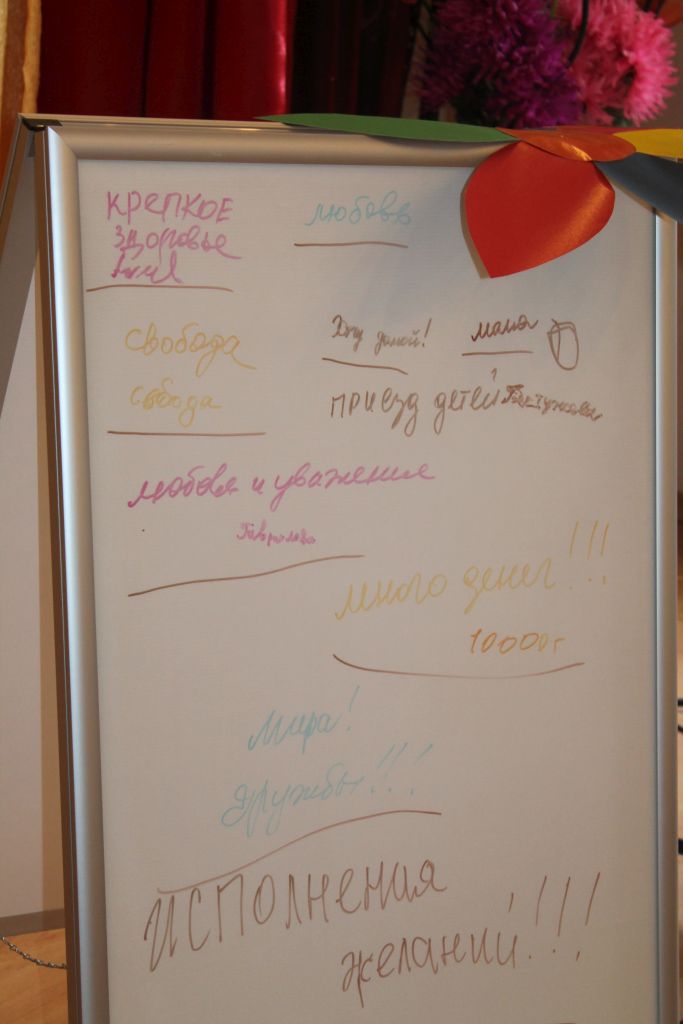 крепкое
здоровье
любовь
свобода
свобода
Хочу домой!
мама
приезд детей
любовь и уважения
Гаврилова
много денег!!!
10000г
Мира!
дружбы!!!
исполнения
желаний!!!